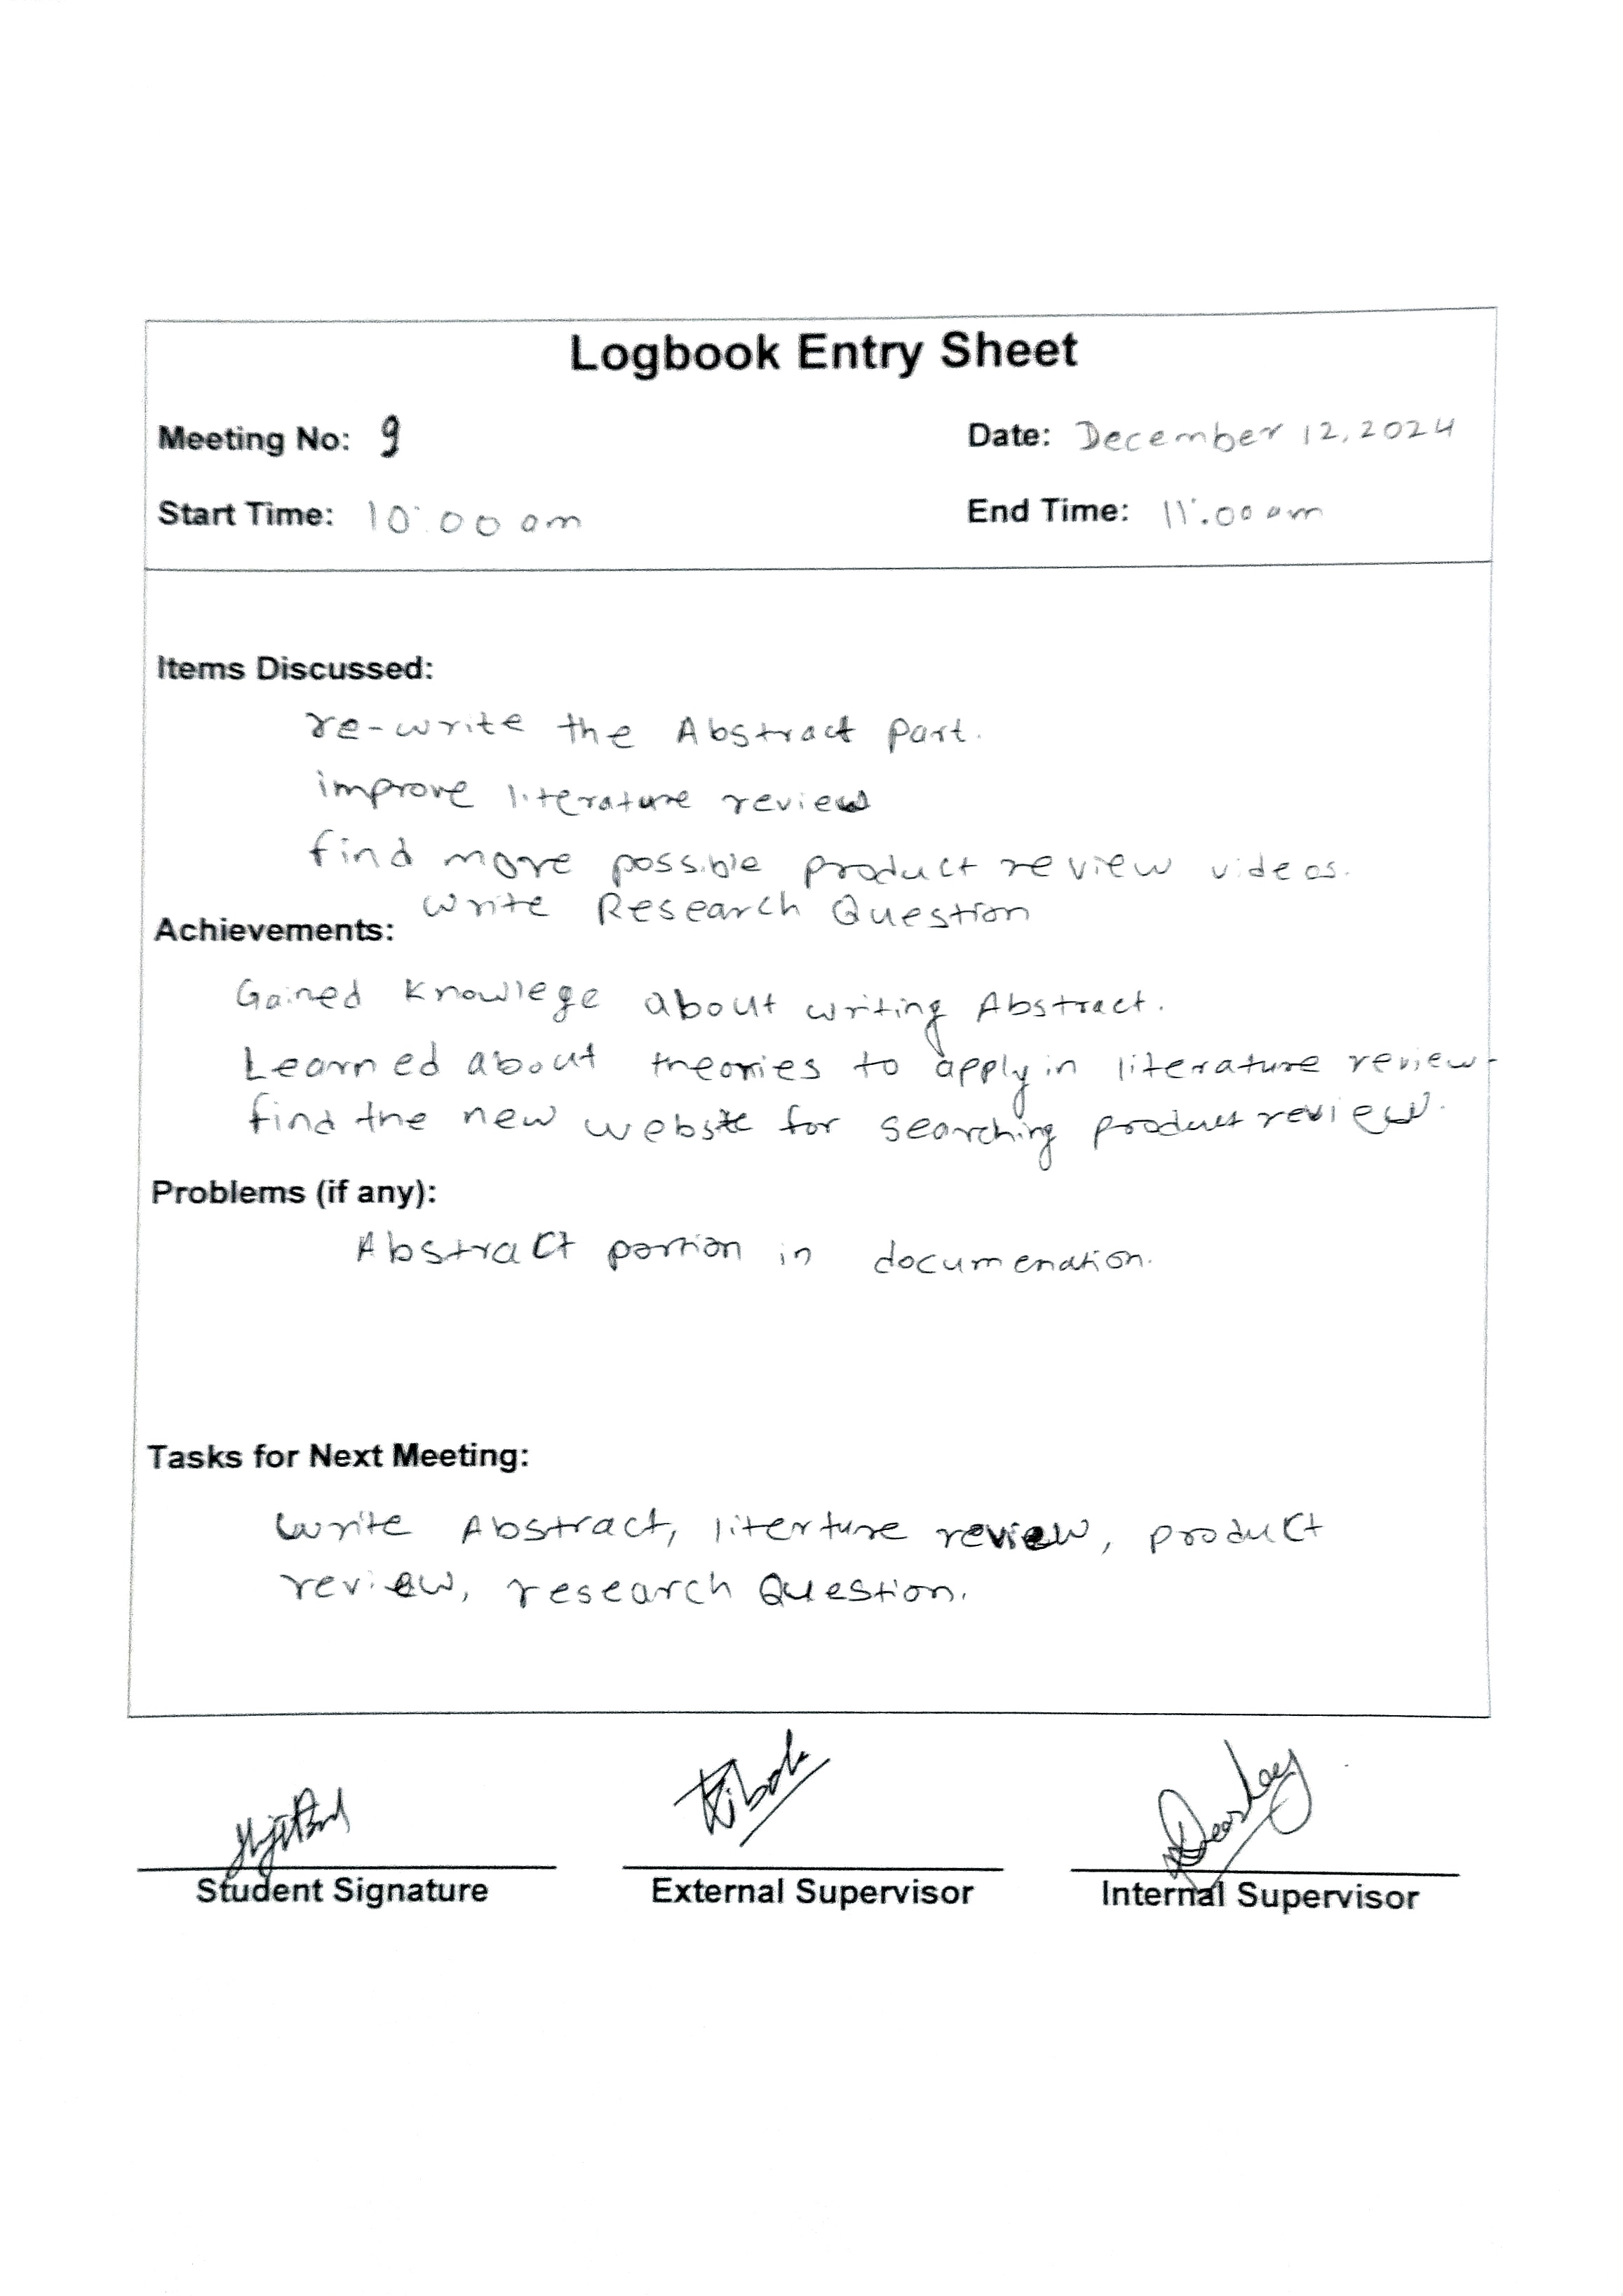 Logbook Entry Sheet
Meeting No: 9
Date: December 12, 2024
Start Time: 10:00 am
End Time: 11:00 am
Items Discussed:
re-write the Abstract Part.
improve literature review
find more possible product review videos.
write Research Question
Achievements:
Gained Knowlege about writing Abstract.
Learned about theories to apply in literature review-
find the new webste for searching product review.
Problems (if any):
Abstract portion in documenation.
Tasks for Next Meeting:
write Abstract, literture review, product
review, research Question.
Student Signature
External Supervisor
Internal Supervisor